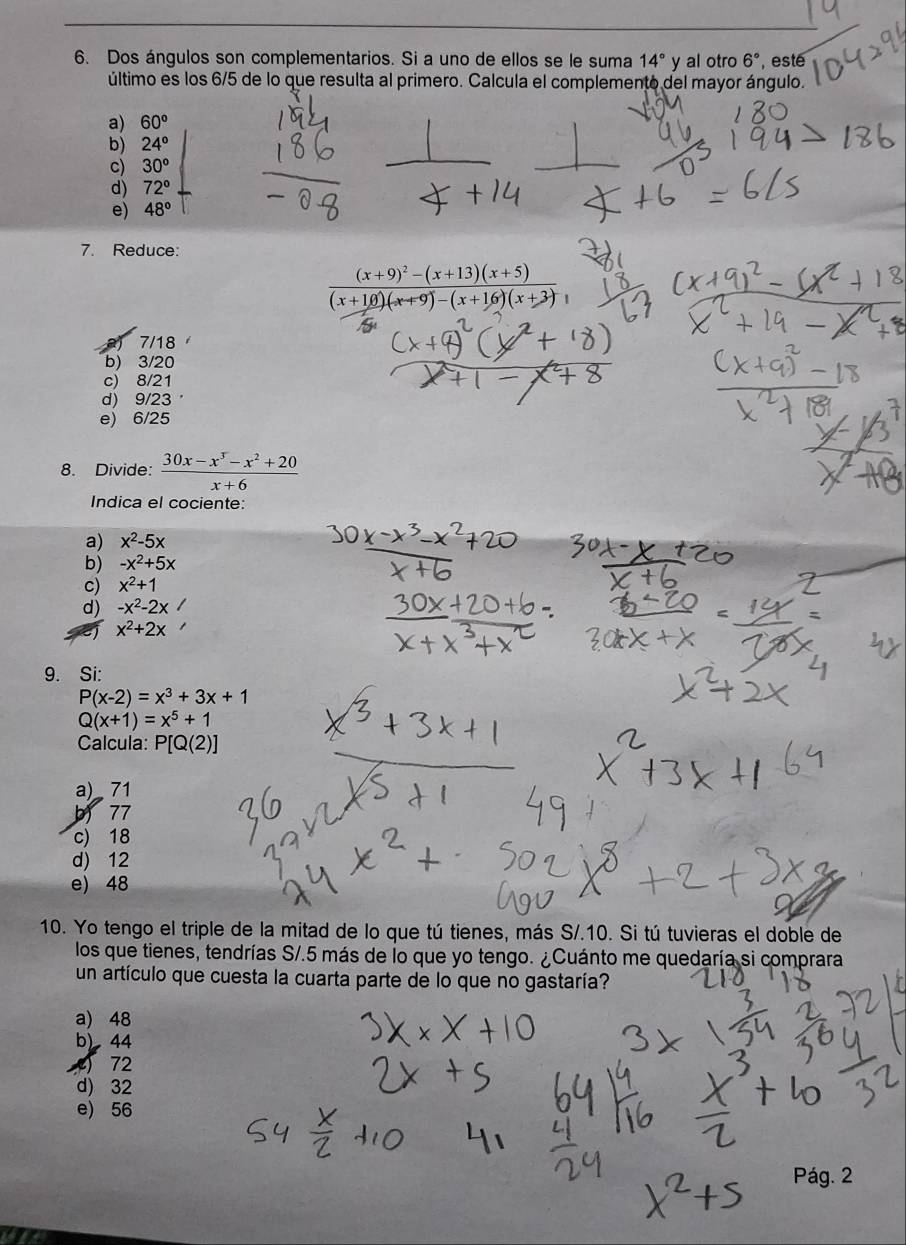 14
6. Dos ángulos son complementarios. Si a uno de ellos se le suma 14° y al otro 6°, este
último es los 6/5 de lo que resulta al primero. Calcula el complemento del mayor ángulo.
104>96
a) 60°
b) 24°
c) 30°
d) 72°
e) 48°
194
186
-08
x + 14
x + 6 = 6/5
180
194 > 186
7. Reduce:
(x+9)² - (x+13)(x+5)
(x+10)(x+9) - (x+16)(x+3)
18
63
(x+9)² - (x² + 18
x² + 19 - x² + 8
(x+9)² (x² + 18)
x² + 1 - x² + 8
(x+9)² - 18
a) 7/18
b) 3/20
c) 8/21
d) 9/23
e) 6/25
8. Divide: 30x - x³ - x² + 20
x + 6
Indica el cociente:
a) x²-5x
b) -x²+5x
c) x²+1
d) -x²-2x
e) x²+2x
30x-x³-x²+20
x+6
30x-x+20
x+6
30x+20+6=
x+x³+x²
x²+2x
9. Si:
P(x-2) = x³ + 3x + 1
Q(x+1) = x⁵ + 1
Calcula: P[Q(2)]
a) 71
b) 77
c) 18
d) 12
e) 48
x³ + 3x + 1
x⁵ + 1
x² + 3x + 1 64
36
49
502 x⁸ + 2 + 3x
10. Yo tengo el triple de la mitad de lo que tú tienes, más S/.10. Si tú tuvieras el doble de
los que tienes, tendrías S/.5 más de lo que yo tengo. ¿Cuánto me quedaría si comprara
un artículo que cuesta la cuarta parte de lo que no gastaría?
210 118
a) 48
b) 44
c) 72
d) 32
e) 56
3x × x + 10
2x + 5
54 x/2 + 10
41
4/24
x² + 5
Pág. 2